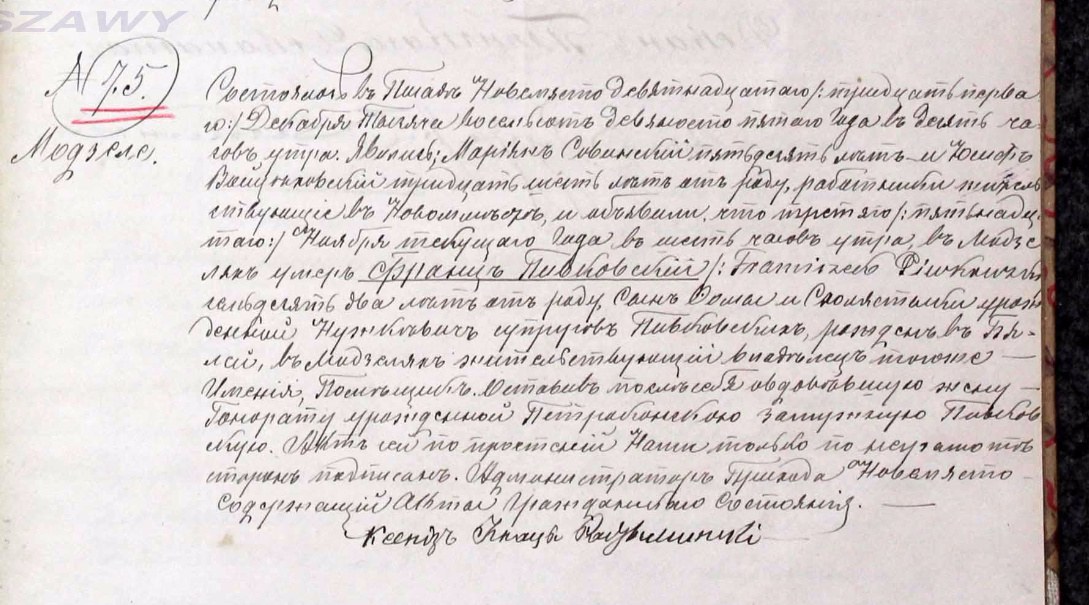 SZAWY
N 75.
Модзеле.
Состоялось въ Посадѣ Новемясто девятнадцатаго /: тридцать перва
го :/ Декабря Тысяча восемьсотъ девяносто пятаго Года въ десять ча-
совъ утра. Явились; Маріянъ Совинскій пятьдесятъ лѣтъ и Юсифъ
тридцать шесть лѣтъ отъ роду, работники житель
ствующіе въ Новомъмѣстѣ, и объявили, что третяго /: пятьнадца
таго :/ Ноября текущаго Года въ шесть часовъ утра, въ Модзе
ляхъ умеръ Францъ Пивковскій /: Franciszek Piwkowski
семьдесятъ два лѣтъ отъ роду, сынъ Ѳомы и Схолястыки урож
денной супруговъ Пивковскихъ, рожденъ въ Бя-
лой, въ Модзеляхъ жительствующій владѣлецъ тогоже —
Имѣнія, Помѣщикъ. Оставивъ послѣ себя овдовѣвшую жену —
Гонорату урожденной замужную Пивков
скую. Актъ сей по прочтеніи Нами только по неграмотѣ
сторонъ подписанъ. Администраторъ Прихода Новемясто
содержащій Акты Гражданскаго Состоянія. —
Ксендзъ Игнацы